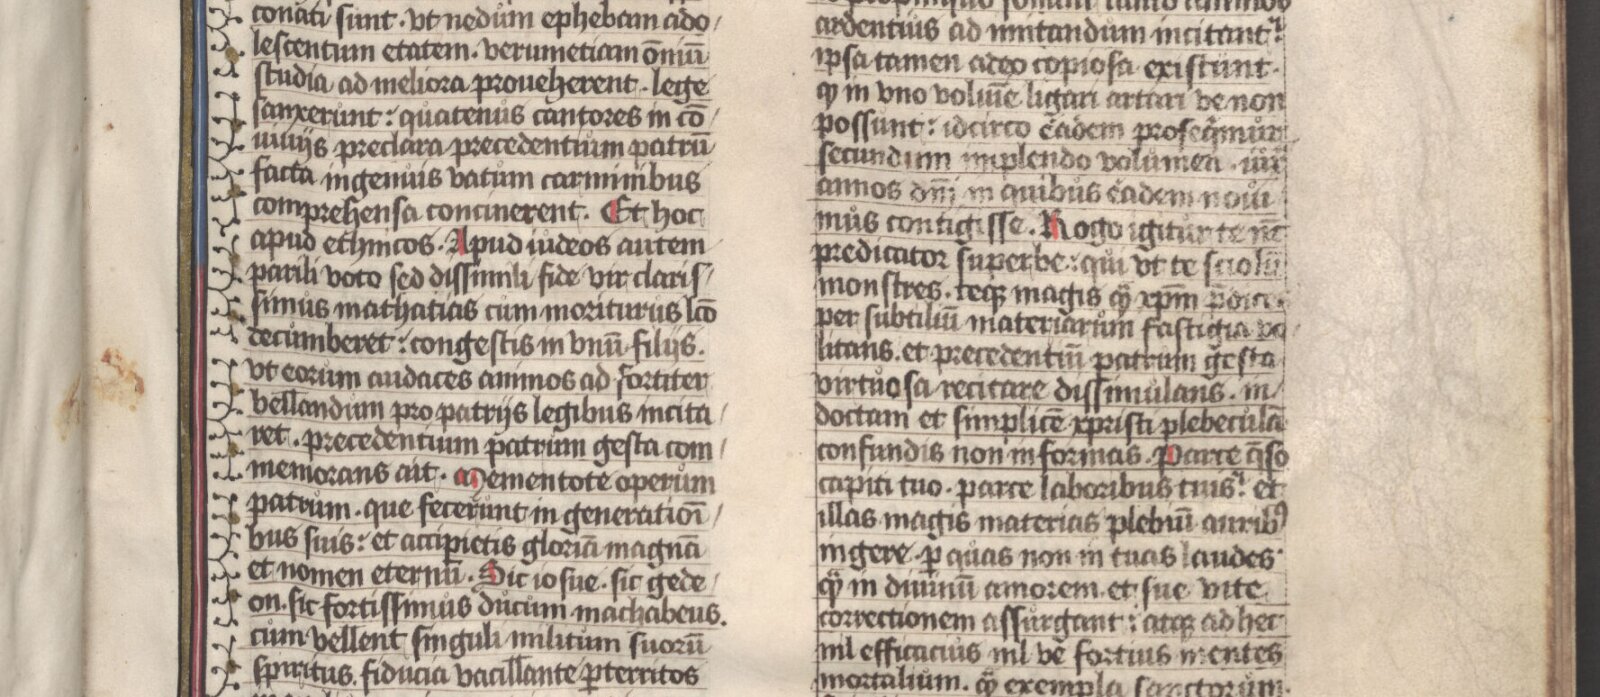 conati sunt. vt nedum ephebam ado/
lescentum etatem. verumetiam om̄iū
studia ad meliora proueherent. lege
sanxerunt: quatenus cantores in cō
uiuijs preclara precedentium patrū
facta ingenuis vatum carminibus
comprehensa concinerent. Et hoc
apud ethnicos. Apud iudeos autem
parili voto sed dissimili fide vir claris/
simus mathatias cum moriturus lc̄o
decumberet: congestis in vnū filijs.
vt eorum audaces animos ad fortiter
bellandum pro patrijs legibus incita/
ret. precedentium patrum gesta com/
memorans ait. Mementote operum
patrum. que fecerunt in generationi/
bus suis: et accipietis gloriā magnā
et nomen eternū. Sic iosue. sic gede/
on. sic fortissimus ducum machabeus.
cum vellent singuli militum suorū
spiritus. fiducia vacillante ꝑterritos
ardentius ad imitandum incitant:
ipsa tamen adeo copiosa existunt.
ꝙ in vno volumē ligari artari ve non
possunt: idcirco eadem
secundum implendo volumen.
annos dn̄i in quibus eadem noui
mus contigisse. Rogo igitur te
predicator superbe: qui vt te sciolū
monstres. teqꝫ magis ꝙ̄ xp̄m
per subtiliū materiarum fastigia vo
litans. et precedentiū patrum gesta
virtuosa recitare dissimulans. in/
doctam et simplicē xpristi plebeculā
confundis non informas. Parce q̄so
capiti tuo. parce laboribus tuis: et
illas magis materias plebiū aurib⁹
ingere. ꝑ quas non in tuas laudes
ꝙ̄ in diuinū amorem. et sue vite
correctionem assurgant: atqꝫ ad hec
nil efficacius nil vē fortius mentes
mortalium. ꝙ̄ exempla sanctorum.